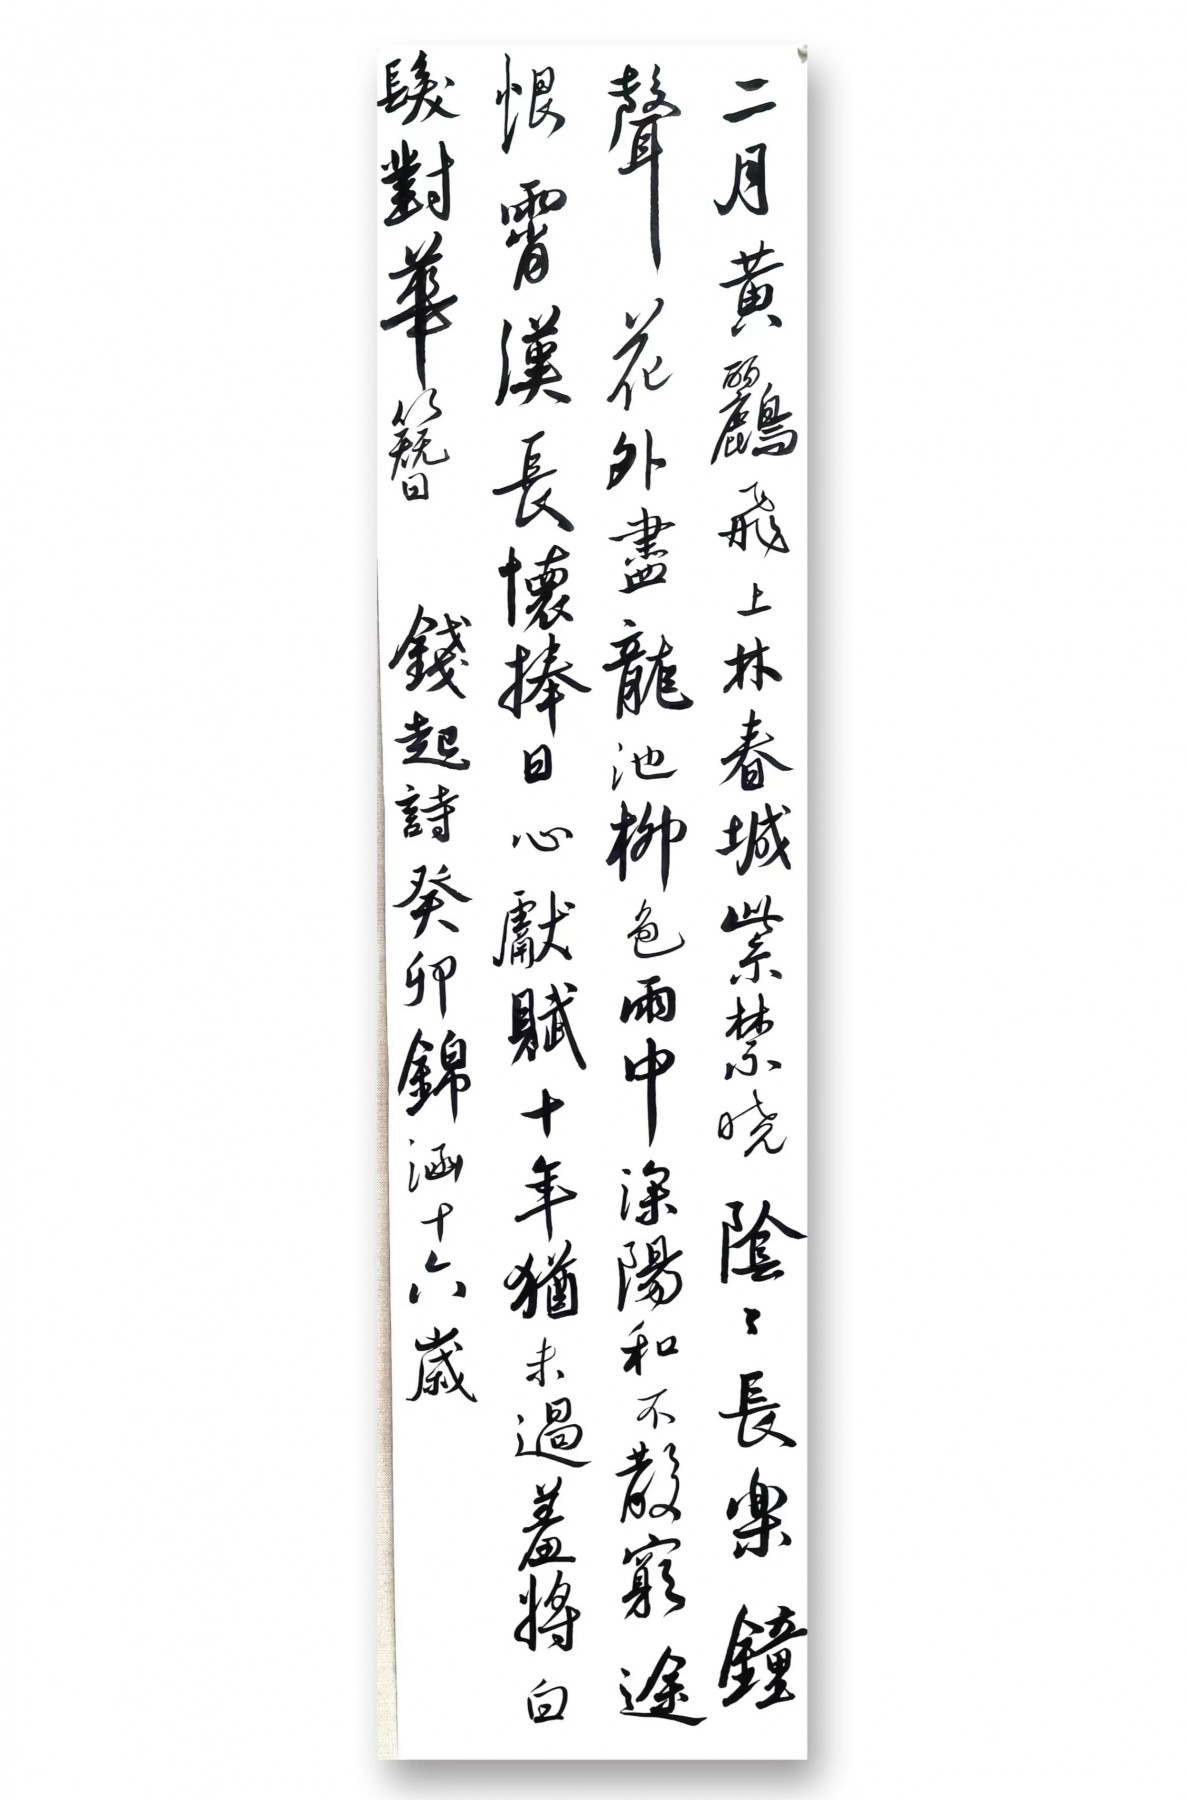 二月黃鸝飛上林春城紫禁曉陰〻長樂鐘
聲花外盡龍池柳色雨中深陽和不散窮途
恨霄漢長懷捧日心獻賦十年猶未遇羞將白
髮對華簪
錢起詩癸卯錦涵十六歲